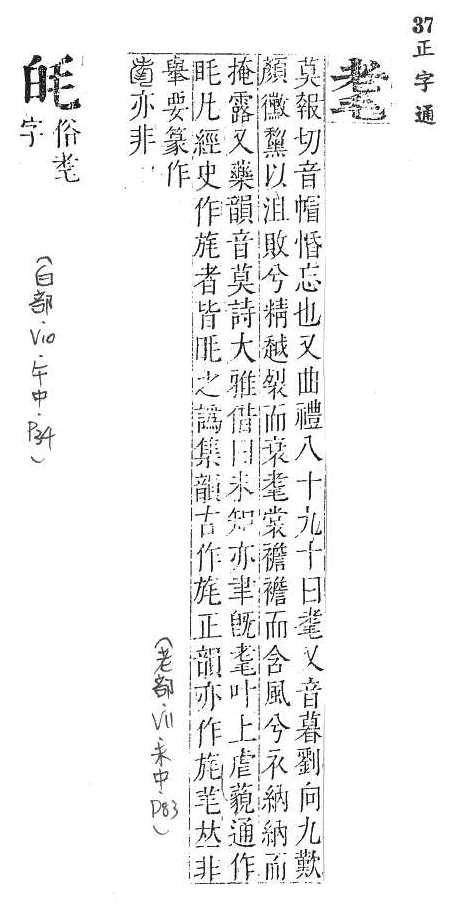 37 正字通
耄
莫報切音帽惛忘也又曲禮八十九十曰耄又音暮劉向九歎
顏黴黧以沮敗兮精越裂而衰耄裳襜襜而含風兮衣納納而
掩露又藥韻音莫詩大雅借曰未知亦聿旣耄叶上虐藐通作
眊凡經史作旄者皆眊之譌集韻古作旄正韻亦作旄芼𠀤非
舉要篆作
亦非
(老部.V11.未中.P83)
俗耄
字
(白部.V10.午中.P34)